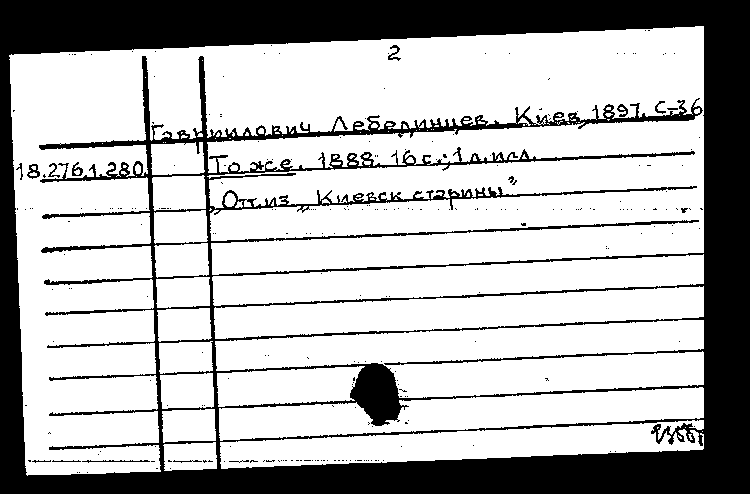 2
Гавриилович Лебединцев. Киев, 1897. С-36
18.276.1.280. То же. 1888. 16 с.; 1 л. илл.
„Отт. из „Киевск старины"